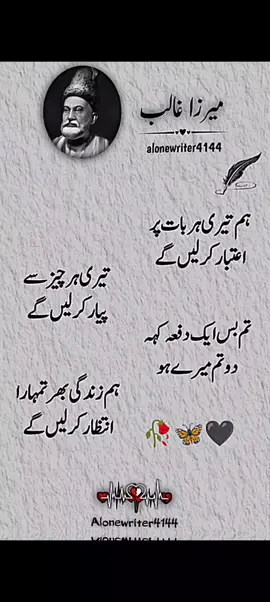 میرزا غالب
alonewriter4144
ہم تیری ہر بات پر
اعتبار کر لیں گے
تیری ہر چیز سے
پیار کر لیں گے
تم بس ایک دفعہ کہہ
دو تم میرے ہو
ہم زندگی بھر تمہارا
انتظار کر لیں گے
Alonewriter4144